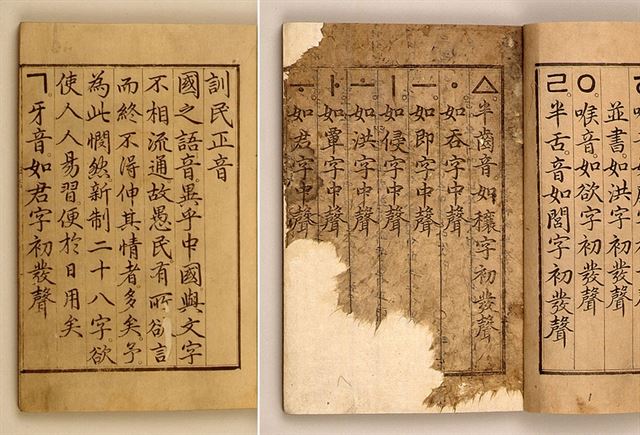 訓民正音
國之語音。異乎中國與文字
不相流通故愚民有所欲言
而終不得伸其情者多矣。予
為此憫然新制二十八字。欲
使人人易習便於日用矣
ㄱ。牙音。如君字初發聲
並書。如洪字初發聲
ㅇ。喉音。如欲字初發聲
ㄹ。半舌音。如閭字初發聲
ㅿ。半齒音。如穰字初發聲
ㆍ。如吞字中聲
ㅡ。如即字中聲
ㅣ。如侵字中聲
ㅗ。如洪字中聲
ㅏ。如覃字中聲
ㅜ。如君字中聲